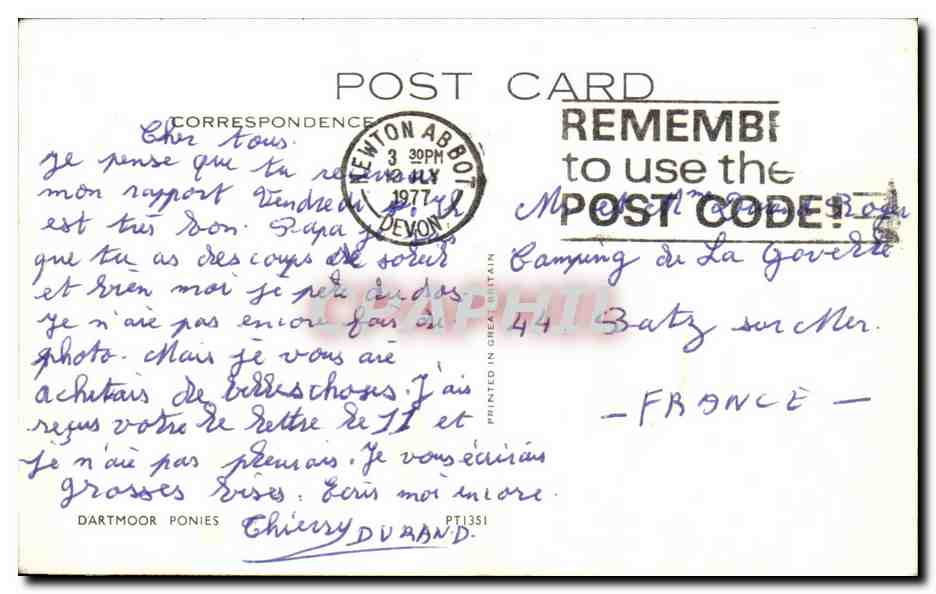 POST CARD
CORRESPONDENCE
NEWTON ABBOT
3 30PM
12 JLY
1977
DEVON
REMEMBE
to use the
POST CODE!
Cher tous.
Je pense que tu
mon rapport Vendredi
est très bon. Papa je
que tu as des coups de soleil
et bien moi je pèle du dos.
Je n'aie pas encore fais de
photo. Mais je vous aie
achetais de belles choses. J'ais
reçus votre le lettre le 11 et
je n'aie pas pleurais. Je vous écrirais
grosses bises. Ecris moi encore.
Thierry DURAND.
DARTMOOR PONIES
PT1351
PRINTED IN GREAT BRITAIN
Mr et Mme Durand
Camping de La Govelle
44. Batz sur Mer.
- FRANCE -
CPAPHIL